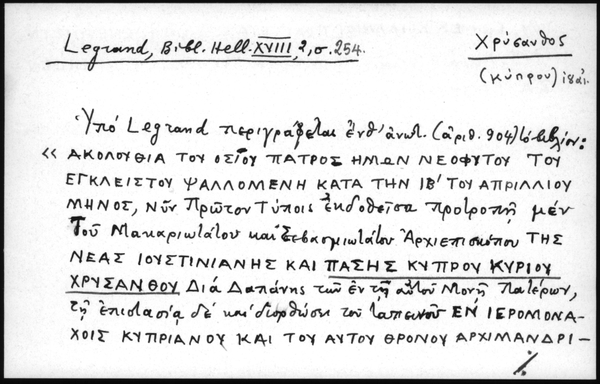 Legrand, Bibl. Hell. XVIII, 2, σ. 254.
Χρύσανθος
(Κύπρου)
Ὑπό Legrand περιγράφεται ἔνθ' ἀνωτ. (ἀριθ. 904) τό βιβλίον:
« ΑΚΟΛΟΥΘΙΑ ΤΟΥ ΟΣΙΟΥ ΠΑΤΡΟΣ ΗΜΩΝ ΝΕΟΦΥΤΟΥ ΤΟΥ
ΕΓΚΛΕΙΣΤΟΥ ΨΑΛΛΟΜΕΝΗ ΚΑΤΑ ΤΗΝ ΙΒ' ΤΟΥ ΑΠΡΙΛΛΙΟΥ
ΜΗΝΟΣ, Νῦν Πρῶτον Τύποις Ἐκδοθεῖσα προτροπῇ μέν
τοῦ Μακαριωτάτου καί Σεβασμιωτάτου Ἀρχιεπισκόπου ΤΗΣ
ΝΕΑΣ ΙΟΥΣΤΙΝΙΑΝΗΣ ΚΑΙ ΠΑΣΗΣ ΚΥΠΡΟΥ ΚΥΡΙΟΥ
ΧΡΥΣΑΝΘΟΥ Διά Δαπάνης τῶν ἐν τῇ αὐτοῦ Μονῇ Πατέρων,
τῇ ἐπιστασίᾳ δέ καί διορθώσει τοῦ ταπεινοῦ ΕΝ ΙΕΡΟΜΟΝΑ-
ΧΟΙΣ ΚΥΠΡΙΑΝΟΥ ΚΑΙ ΤΟΥ ΑΥΤΟΥ ΘΡΟΝΟΥ ΑΡΧΙΜΑΝΔΡΙ-
./.